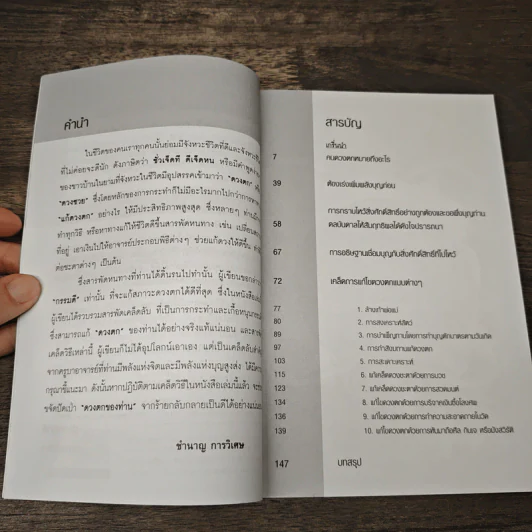 คำนำ
ในชีวิตของคนเราทุกคนนั้นย่อมมีจังหวะชีวิตที่ดีและจังหวะชีวิต
ที่ไม่ค่อยจะดีนัก ดังภาษิตว่า ชั่วเจ็ดที ดีเจ็ดหน หรือมีคำพูด
ของชาวบ้านในยามที่จังหวะชีวิตมีอุปสรรคเข้ามาว่า "ดวงตก"
"ดวงซวย" ซึ่งโดยหลักของการกระทำก็ไม่มีอะไรมากไปกว่าการ
"แก้ดวงตก" อย่างไร ให้มีประสิทธิภาพสูงสุด ซึ่งหลายๆ ท่าน
ทำทุกวิธี หรือหาทางแก้ให้ชีวิตดีขึ้นสารพัดหนทาง เช่น เปลี่ยน
ที่อยู่ เอาเงินไปให้อาจารย์ประกอบพิธีต่างๆ ช่วยแก้ดวงให้ดีขึ้น
ต่อชะตาต่างๆ เป็นต้น
ซึ่งสารพัดหนทางที่ท่านได้ดิ้นรนไปเท่านั้น ผู้เขียนขอ
"กรรมดี" เท่านั้น ที่จะแก้สภาวะดวงตกได้ดีที่สุด ซึ่งในหนังสือ
ผู้เขียนได้รวบรวมสารพัดเคล็ดลับ ที่เป็นการกระทำและเกื้อหนุน
ซึ่งสามารถแก้ "ดวงตก" ของท่านได้อย่างจริงแท้แน่นอน และ
เคล็ดวิธีเหล่านี้ ผู้เขียนก็ไม่ได้อุปโลกน์เอาเอง แต่เป็นเคล็ดลับ
จากครูบาอาจารย์ที่ท่านมีพลังแห่งจิตและมีพลังแห่งบุญสูงส่ง ได้
กรุณาชี้แนะมา ดังนั้นหากปฏิบัติตามเคล็ดวิธีในหนังสือเล่มนี้แล้ว
ขจัดปัดเป่า "ดวงตกของท่าน" จากร้ายกลับกลายเป็นดีได้อย่างแน่นอน
ชำนาญ การวิเศษ
สารบัญ
เกริ่นนำ
7 คนดวงตกหมายถึงอะไร
39 ต้องเร่งเพิ่มพลังบุญก่อน
การกราบไหว้สิ่งศักดิ์สิทธิ์อย่างถูกต้องและขอพึ่งบุญท่าน
58 ดลบันดาลให้สัมฤทธิผลได้ดังใจปรารถนา
67 การอธิษฐานพร้อมบุญกับสิ่งศักดิ์สิทธิ์ที่ไปไหว้
72 เคล็ดการแก้ไขดวงตกแบบต่างๆ
77 1. ล้างเท้าพ่อแม่
80 2. การสงเคราะห์สัตว์
89 3. การบำเพ็ญทานโดยการทำบุญตักบาตรตามวันเกิด
97 4. การทำสังฆทานแก้ดวงตก
103 5. การสะเดาะเคราะห์
115 6. แก้เคล็ดดวงชะตาด้วยการบวช
123 7. แก้เคล็ดดวงชะตาด้วยการสวดมนต์
132 8. แก้ไขดวงตกด้วยการบริจาคเงินซื้อโลงศพ
136 9. แก้ไขดวงตกด้วยการทำความสะอาดภายในวัด
139 10. แก้ไขดวงตกด้วยการหันมาถือศีล กินเจ หรือมังสวิรัติ
147 บทสรุป